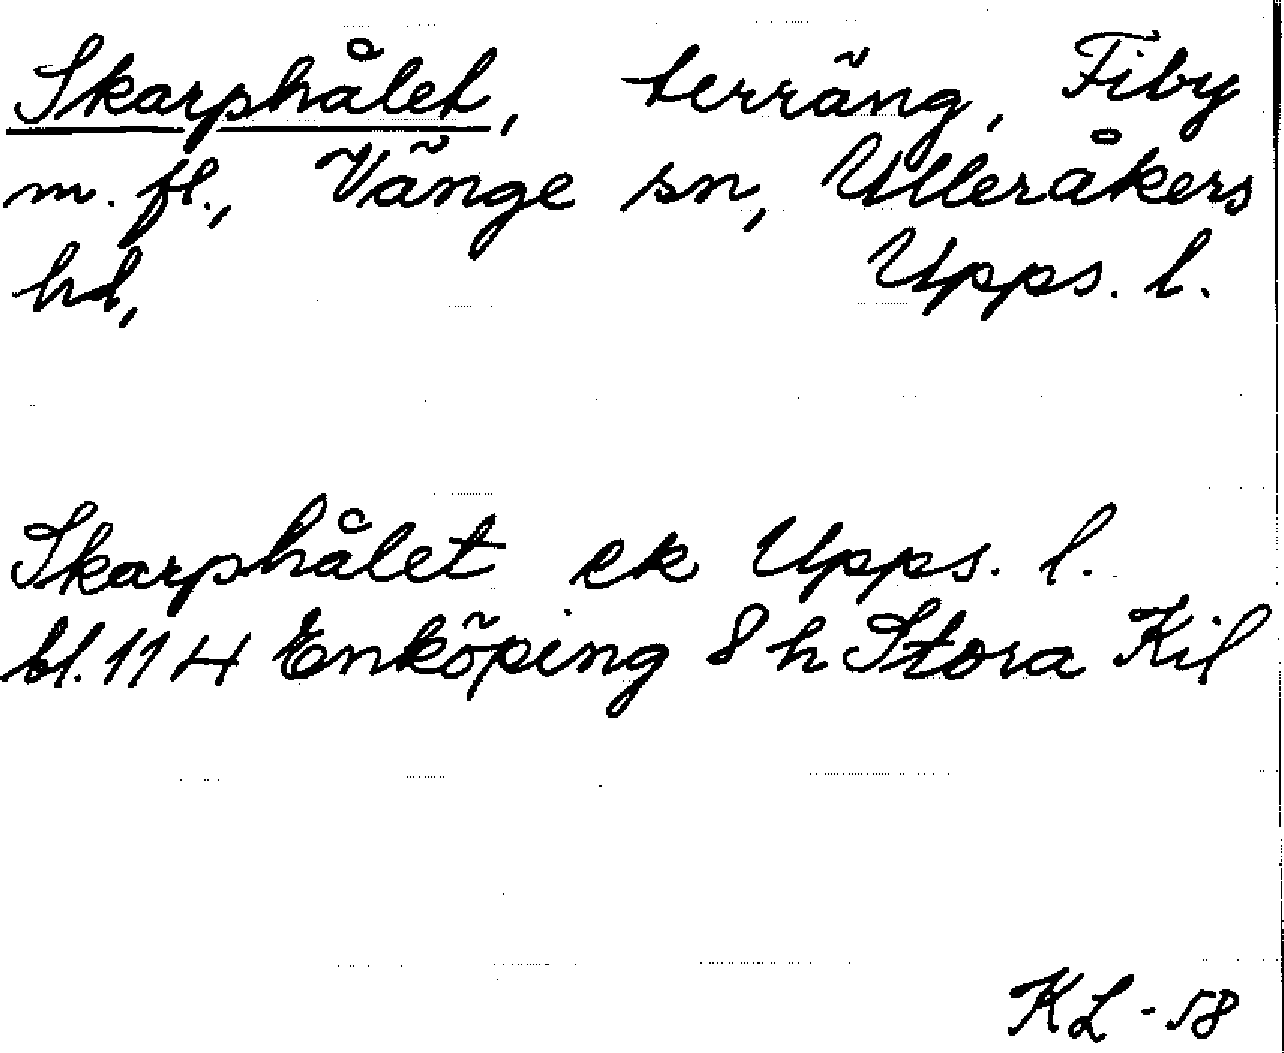 Skarphålet, terräng, Fiby
m. fl., Vänge sn, Ulleråkers
hd, Upps. l.
Skarphålet ek Upps. l.
bl. 114 Enköping 8 h Stora Kil
KL -58